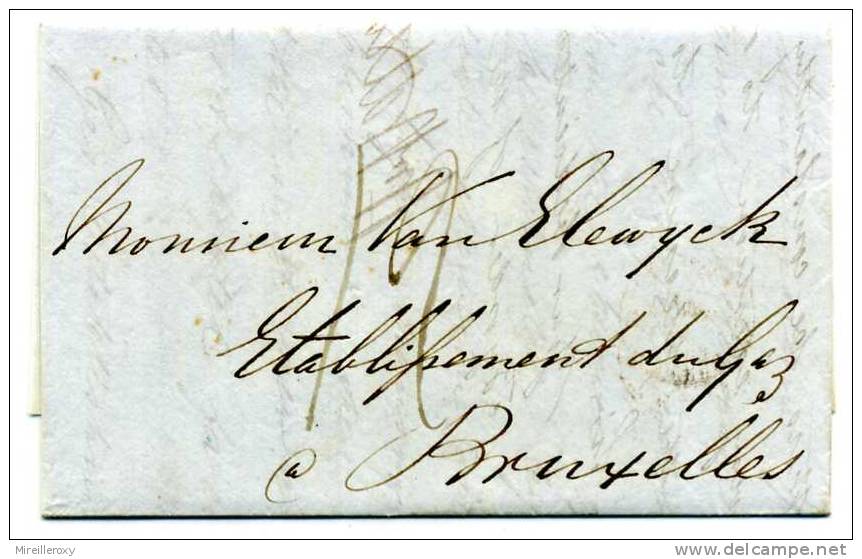 Monsieur Van Elewyck
Etablissement du Gaz
a Bruxelles
Mireilleroxy
delcampe.net